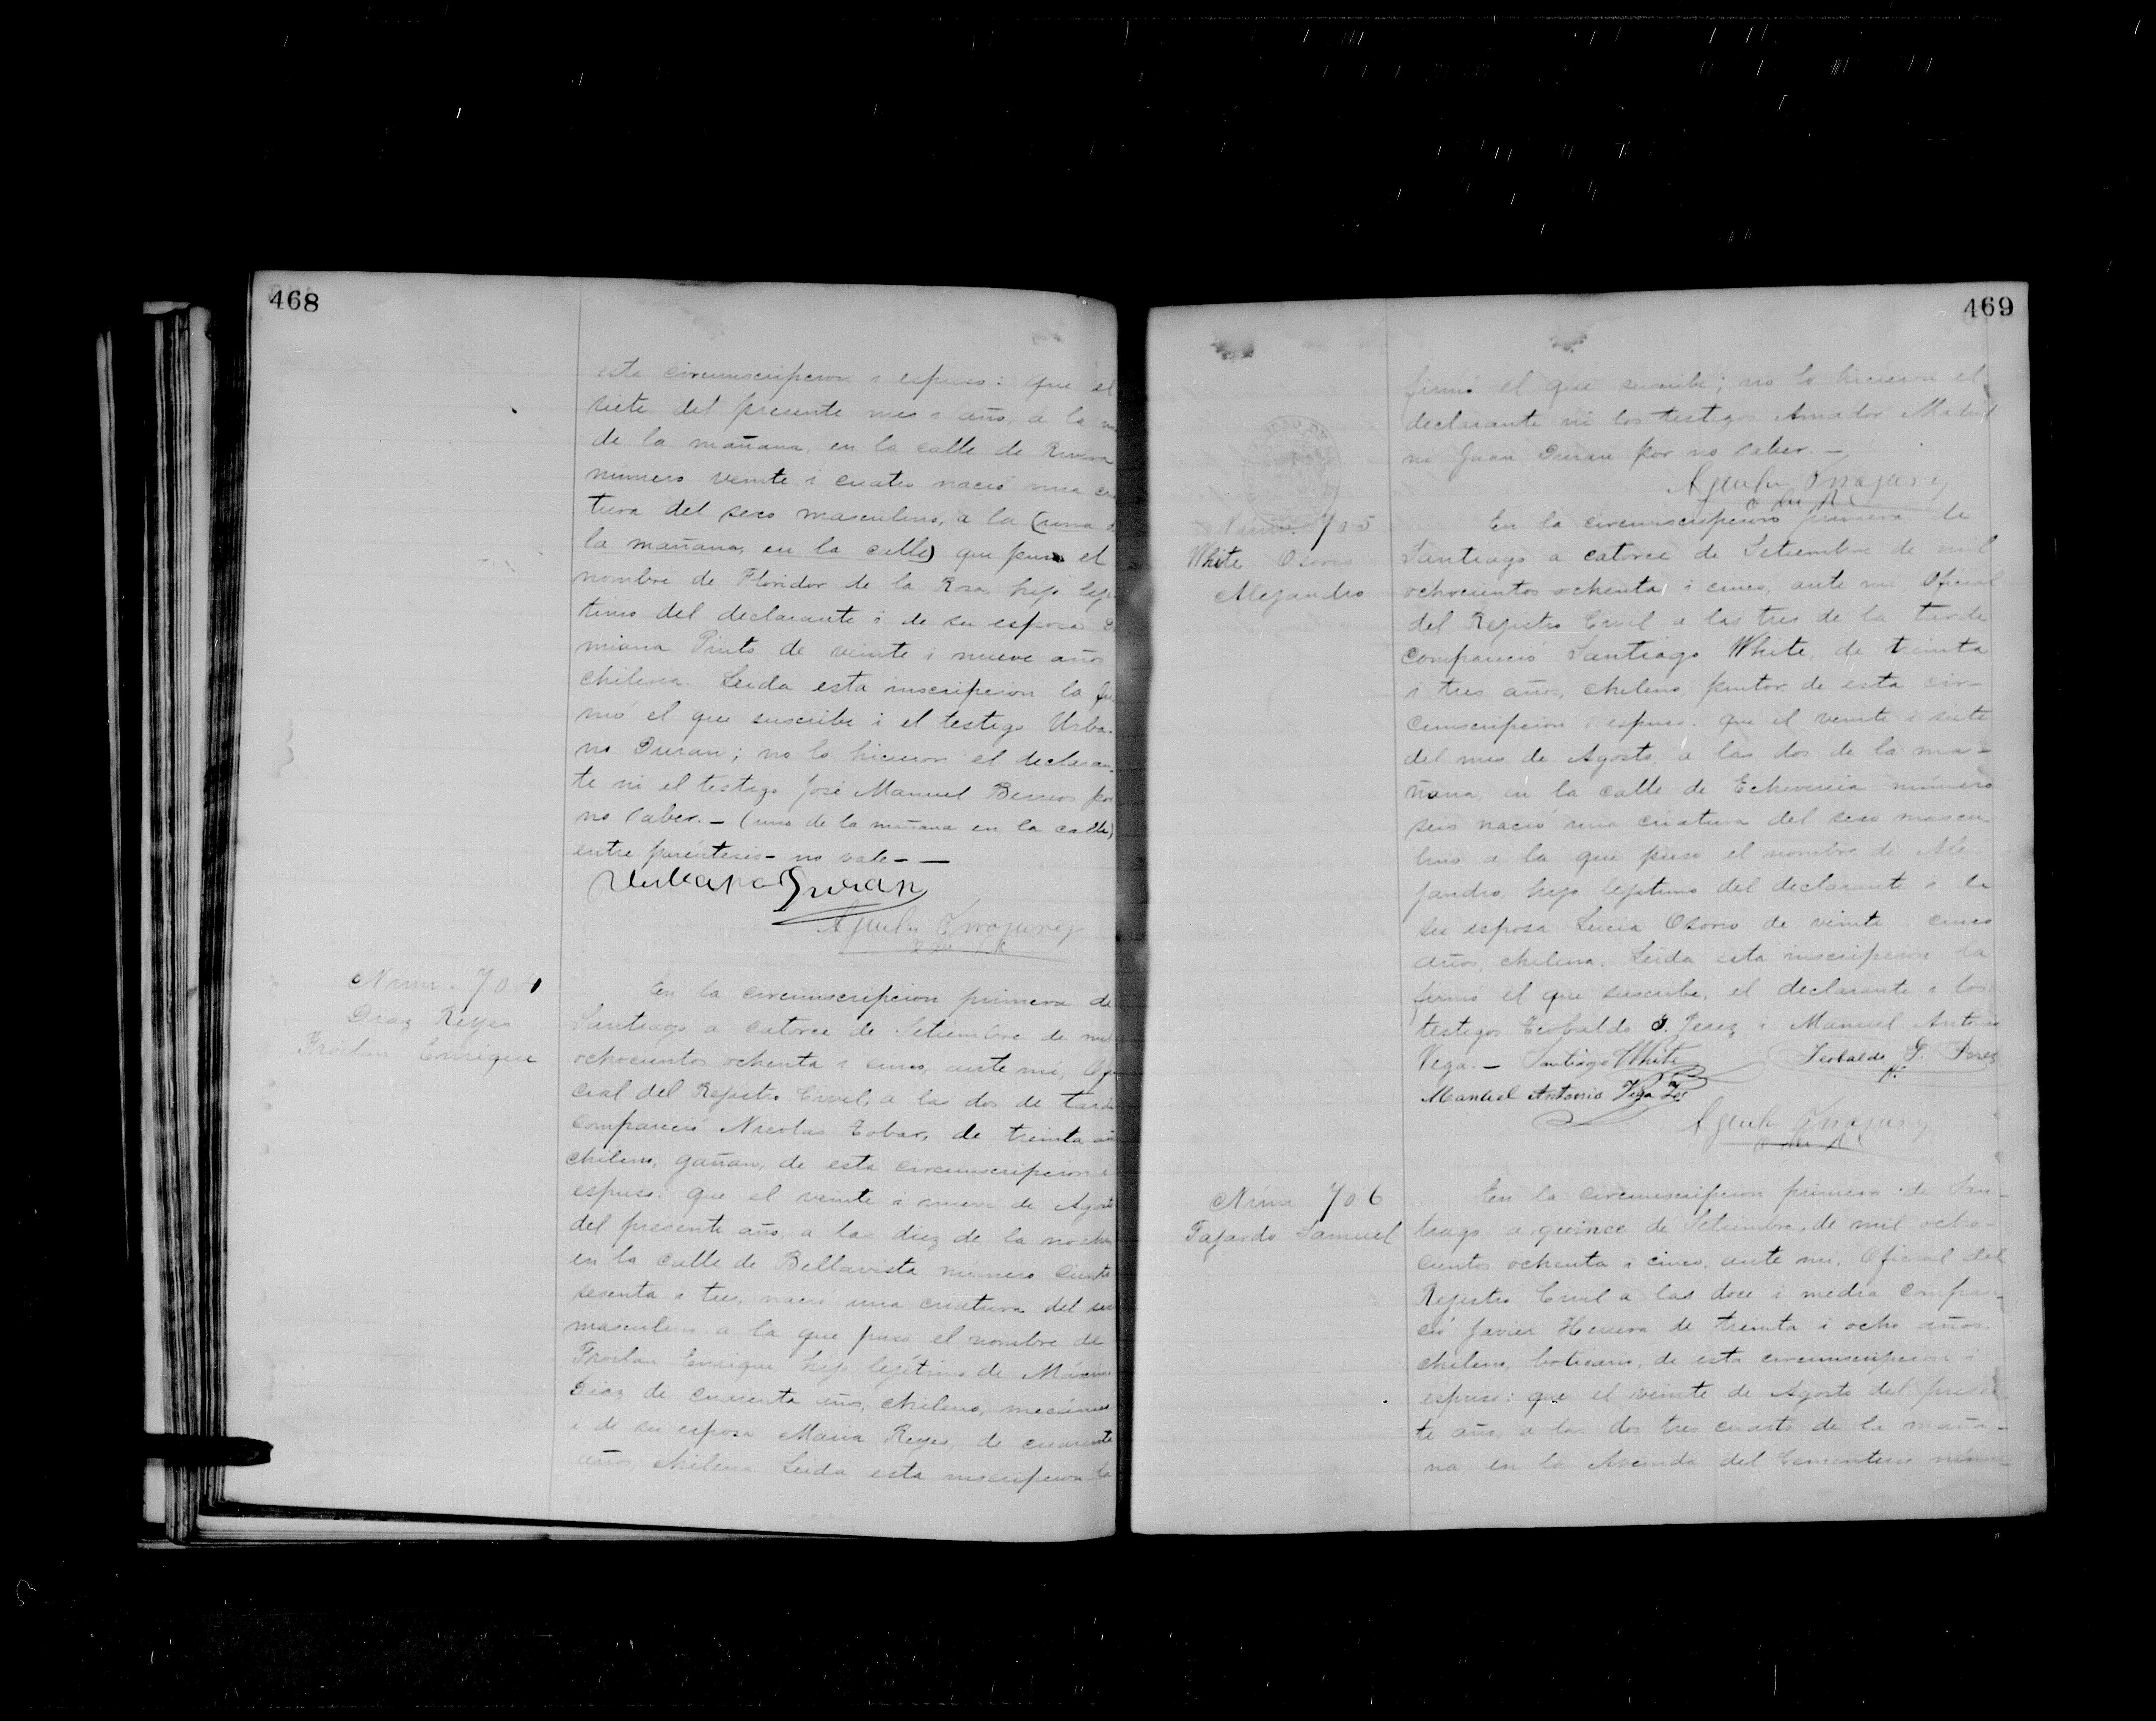 468
esta circunscripcion i espuso: que el
siete del presente mes i año, a la
de la mañana, en la calle de Rivera
número veinte i cuatro nació una cria
tura del sexo masculino, a la (una de
la mañana, en la calle) que puso el
nombre de Floridor de la Rosa, hijo lejí
timo del declarante i de su esposa
miana Pinto de veinte i nueve años
chilena. Leida esta inscripcion la fir
mó el que suscribe i el testigo Urba-
no Duran; no lo hicieron el declaran-
te ni el testigo José Manuel Berrios por
no saber. — (una de la mañana en la calle)
entre paréntesis - no vale - —
Urbano Duran
Núm. 704
Diaz Reyes
Froilan Enrique
En la circunscripcion primera de
Santiago a catorce de Setiembre de mil
ochocientos ochenta i cinco, ante mí, Ofi
cial del Rejistro Civil, a las dos de tarde
compareció Nicolas Tobar, de treinta años
chileno, gañan, de esta circunscripcion i
espuso: que el veinte i nueve de Agosto
del presente año, a las diez de la noche
en la calle de Bellavista número ciento
sesenta i tres, nació una criatura del sexo
masculino a la que puso el nombre de
Froilan Enrique hijo lejítimo de Máximo
Diaz de cuarenta años, chileno, mecánico
i de su esposa Maria Reyes, de cuarenta
años, chilena. Leida esta inscripcion la
469
firmó el que suscribe; no lo hicieron el
declarante ni los testigos Amador Madrid
ni Juan Duran por no saber. —
Núm. 705
White Osorio
Alejandro
En la circunscripcion primera de
Santiago a catorce de Setiembre de mil
ochocientos ochenta i cinco, ante mí Oficial
del Rejistro Civil a las tres de la tarde
compareció Santiago White, de treinta
i tres años, chileno, pintor, de esta cir-
cunscripcion i espuso: que el veinte i siete
del mes de Agosto, a las dos de la ma-
ñana, en la calle de Echeverria número
seis nació una criatura del sexo mascu
lino a la que puso el nombre de Ale
jandro, hijo lejítimo del declarante i de
su esposa Lucia Osorio de veinte cinco
años, chilena. Leida esta inscripcion la
firmó el que suscribe, el declarante i los
testigos Teobaldo G. Perez i Manuel Antonio
Vega. — Santiago White Teobaldo G. Perez
Manuel Antonio Vega
Núm 706
Fajardo Samuel
En la circunscripcion primera de San-
tiago a quince de Setiembre, de mil ocho-
cientos ochenta i cinco, ante mí, Oficial del
Rejistro Civil a las doce i media compare-
ció Javier Herrera de treinta i ocho años,
chileno, boticario, de esta circunscripcion i
espuso: que el veinte de Agosto del presen
te año, a las dos tres cuarto de la maña-
na en la Avenida del Cementerio núme-